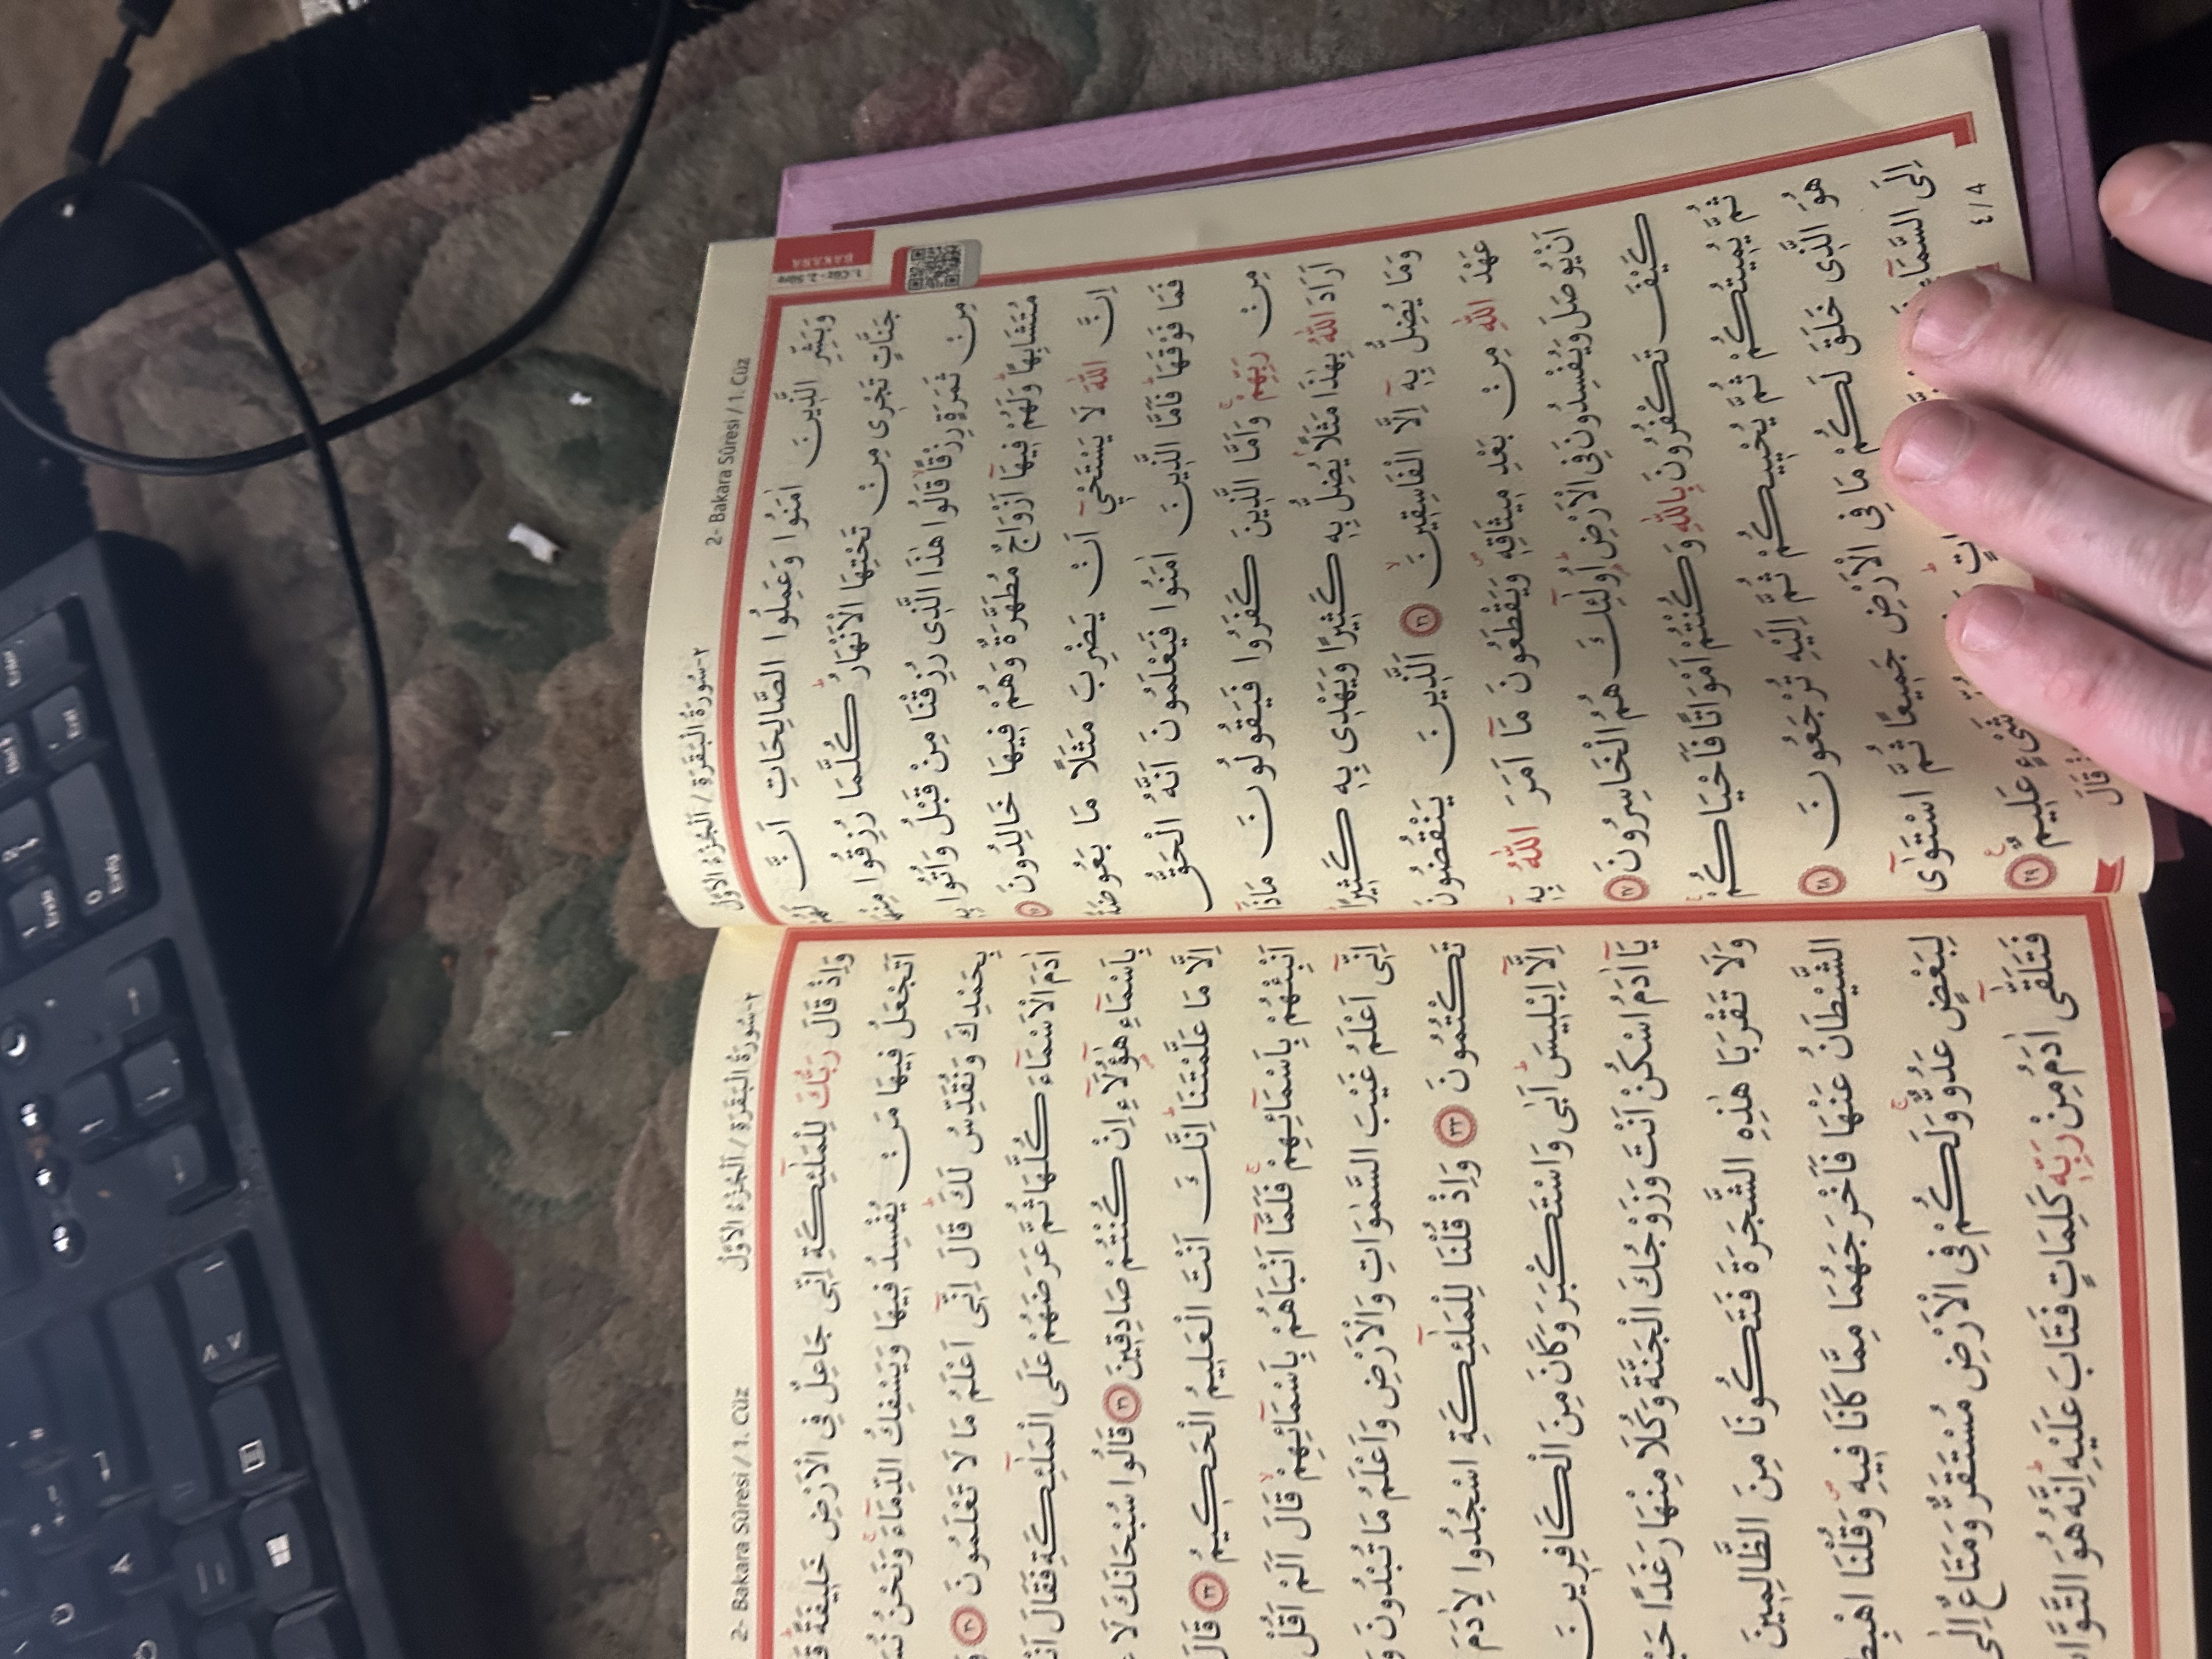 ٢-سُورَةُ الْبَقَرَةِ / اَلْجُزْءُ الْاَوَّلُ
2- Bakara Sûresi / 1. Cüz
1. Cüz - 2. Sûre
BAKARA
وَبَشِّرِ الَّذٖينَ اٰمَنُوا وَعَمِلُوا الصَّالِحَاتِ اَنَّ لَهُمْ
جَنَّاتٍ تَجْرٖى مِنْ تَحْتِهَا الْاَنْهَارُؕ كُلَّمَا رُزِقُوا مِنْهَا
مِنْ ثَمَرَةٍ رِزْقًاۙ قَالُوا هٰذَا الَّذٖى رُزِقْنَا مِنْ قَبْلُ وَاُتُوا بِهٖ
مُتَشَابِهًاؕ وَلَهُمْ فٖيهَٓا اَزْوَاجٌ مُطَهَّرَةٌ وَهُمْ فٖيهَا خَالِدُونَ
اِنَّ اللّٰهَ لَا يَسْتَحْيٖٓ اَنْ يَضْرِبَ مَثَلًا مَا بَعُوضَةً
فَمَا فَوْقَهَاؕ فَاَمَّا الَّذٖينَ اٰمَنُوا فَيَعْلَمُونَ اَنَّهُ الْحَقُّ
مِنْ رَبِّهِمْۚ وَاَمَّا الَّذٖينَ كَفَرُوا فَيَقُولُونَ مَاذَٓا
اَرَادَ اللّٰهُ بِهٰذَا مَثَلًاۘ يُضِلُّ بِهٖ كَثٖيرًا وَيَهْدٖى بِهٖ كَثٖيرًاؕ
وَمَا يُضِلُّ بِهٖٓ اِلَّا الْفَاسِقٖينَۙ ٢٦ اَلَّذٖينَ يَنْقُضُونَ
عَهْدَ اللّٰهِ مِنْ بَعْدِ مٖيثَاقِهٖࣕ وَيَقْطَعُونَ مَٓا اَمَرَ اللّٰهُ بِهٖٓ
اَنْ يُوصَلَ وَيُفْسِدُونَ فِى الْاَرْضِؕ اُو۬لٰٓئِكَ هُمُ الْخَاسِرُونَ ٢٧
كَيْفَ تَكْفُرُونَ بِاللّٰهِ وَكُنْتُمْ اَمْوَاتًا فَاَحْيَاكُمْۚ
ثُمَّ يُمٖيتُكُمْ ثُمَّ يُحْيٖيكُمْ ثُمَّ اِلَيْهِ تُرْجَعُونَ ٢٨
هُوَ الَّذٖى خَلَقَ لَكُمْ مَا فِى الْاَرْضِ جَمٖيعًا ثُمَّ اسْتَوٰٓى
اِلَى السَّمَٓاءِ
شَىْءٍ عَلٖيمٌ ٢٩
قَالَ
٤ / 4
2- Bakara Sûresi / 1. Cüz
٢-سُورَةُ الْبَقَرَةِ / اَلْجُزْءُ الْاَوَّلُ
وَاِذْ قَالَ رَبُّكَ لِلْمَلٰٓئِكَةِ اِنّٖى جَاعِلٌ فِى الْاَرْضِ خَلٖيفَةًؕ
اَتَجْعَلُ فٖيهَا مَنْ يُفْسِدُ فٖيهَا وَيَسْفِكُ الدِّمَٓاءَۚ وَنَحْنُ
بِحَمْدِكَ وَنُقَدِّسُ لَكَؕ قَالَ اِنّٖٓى اَعْلَمُ مَا لَا تَعْلَمُونَ ٣٠
اٰدَمَ الْاَسْمَٓاءَ كُلَّهَا ثُمَّ عَرَضَهُمْ عَلَى الْمَلٰٓئِكَةِ فَقَالَ
بِاَسْمَٓاءِ هٰٓؤُ۬لَٓاءِ اِنْ كُنْتُمْ صَادِقٖينَ ٣١ قَالُوا سُبْحَانَكَ لَا
اِلَّا مَا عَلَّمْتَنَاؕ اِنَّكَ اَنْتَ الْعَلٖيمُ الْحَكٖيمُ ٣٢ قَالَ
اَنْبِئْهُمْ بِاَسْمَٓائِهِمْۚ فَلَمَّٓا اَنْبَاَهُمْ بِاَسْمَٓائِهِمْۙ قَالَ اَلَمْ اَقُلْ
اِنّٖٓى اَعْلَمُ غَيْبَ السَّمٰوَاتِ وَالْاَرْضِ وَاَعْلَمُ مَا تُبْدُونَ
تَكْتُمُونَ ٣٣ وَاِذْ قُلْنَا لِلْمَلٰٓئِكَةِ اسْجُدُوا لِاٰدَمَ
اِلَّٓا اِبْلٖيسَؕ اَبٰى وَاسْتَكْبَرَ وَكَانَ مِنَ الْكَافِرٖينَ
يَٓا اٰدَمُ اسْكُنْ اَنْتَ وَزَوْجُكَ الْجَنَّةَ وَكُلَا مِنْهَا رَغَدًا
وَلَا تَقْرَبَا هٰذِهِ الشَّجَرَةَ فَتَكُونَا مِنَ الظَّالِمٖينَ
الشَّيْطَانُ عَنْهَا فَاَخْرَجَهُمَا مِمَّا كَانَا فٖيهِࣕ وَقُلْنَا
لِبَعْضٍ عَدُوٌّۚ وَلَكُمْ فِى الْاَرْضِ مُسْتَقَرٌّ وَمَتَاعٌ اِلٰى
فَتَلَقّٰٓى اٰدَمُ مِنْ رَبِّهٖ كَلِمَاتٍ فَتَابَ عَلَيْهِؕ اِنَّهُ هُوَ
Ü
Ä
Ende
Einfg
Entf
Enter